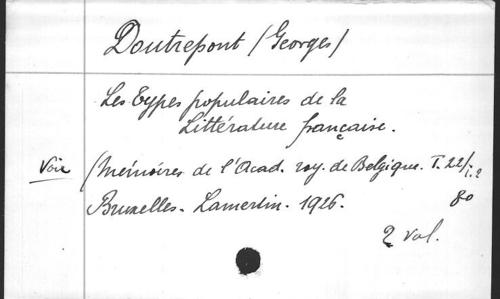 Doutrepont (Georges)
Les Types populaires de la
Littérature française.
Voir (Mémoires de l'Acad. roy. de Belgique. T. 22/1.2
Bruxelles. Lamertin. 1926. 80
2 vol.